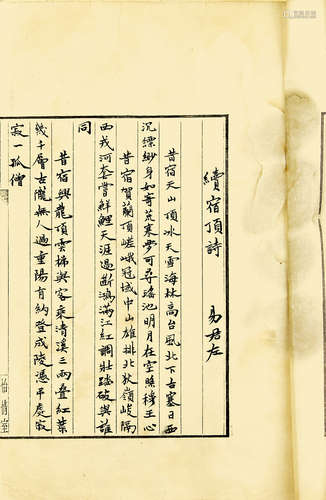 續宿頂詩
易君左
昔宿天山頂冰天雪海林高台風北下古塞日西
沉縹緲身如寄荒寒夢可尋瑤池明月在空照穆王心
昔宿賀蘭頂嵯峨冠域中山雄排北狄嶺峻隔
西戎河套嘗鮮鯉天涯過斷鴻滿江紅調壯踏破與誰
同
昔宿興龍頂雲梯與客乘清溪三兩疊紅葉
幾千層古隴無人過重陽有約登成陵憑弔處寂
寂一孤僧